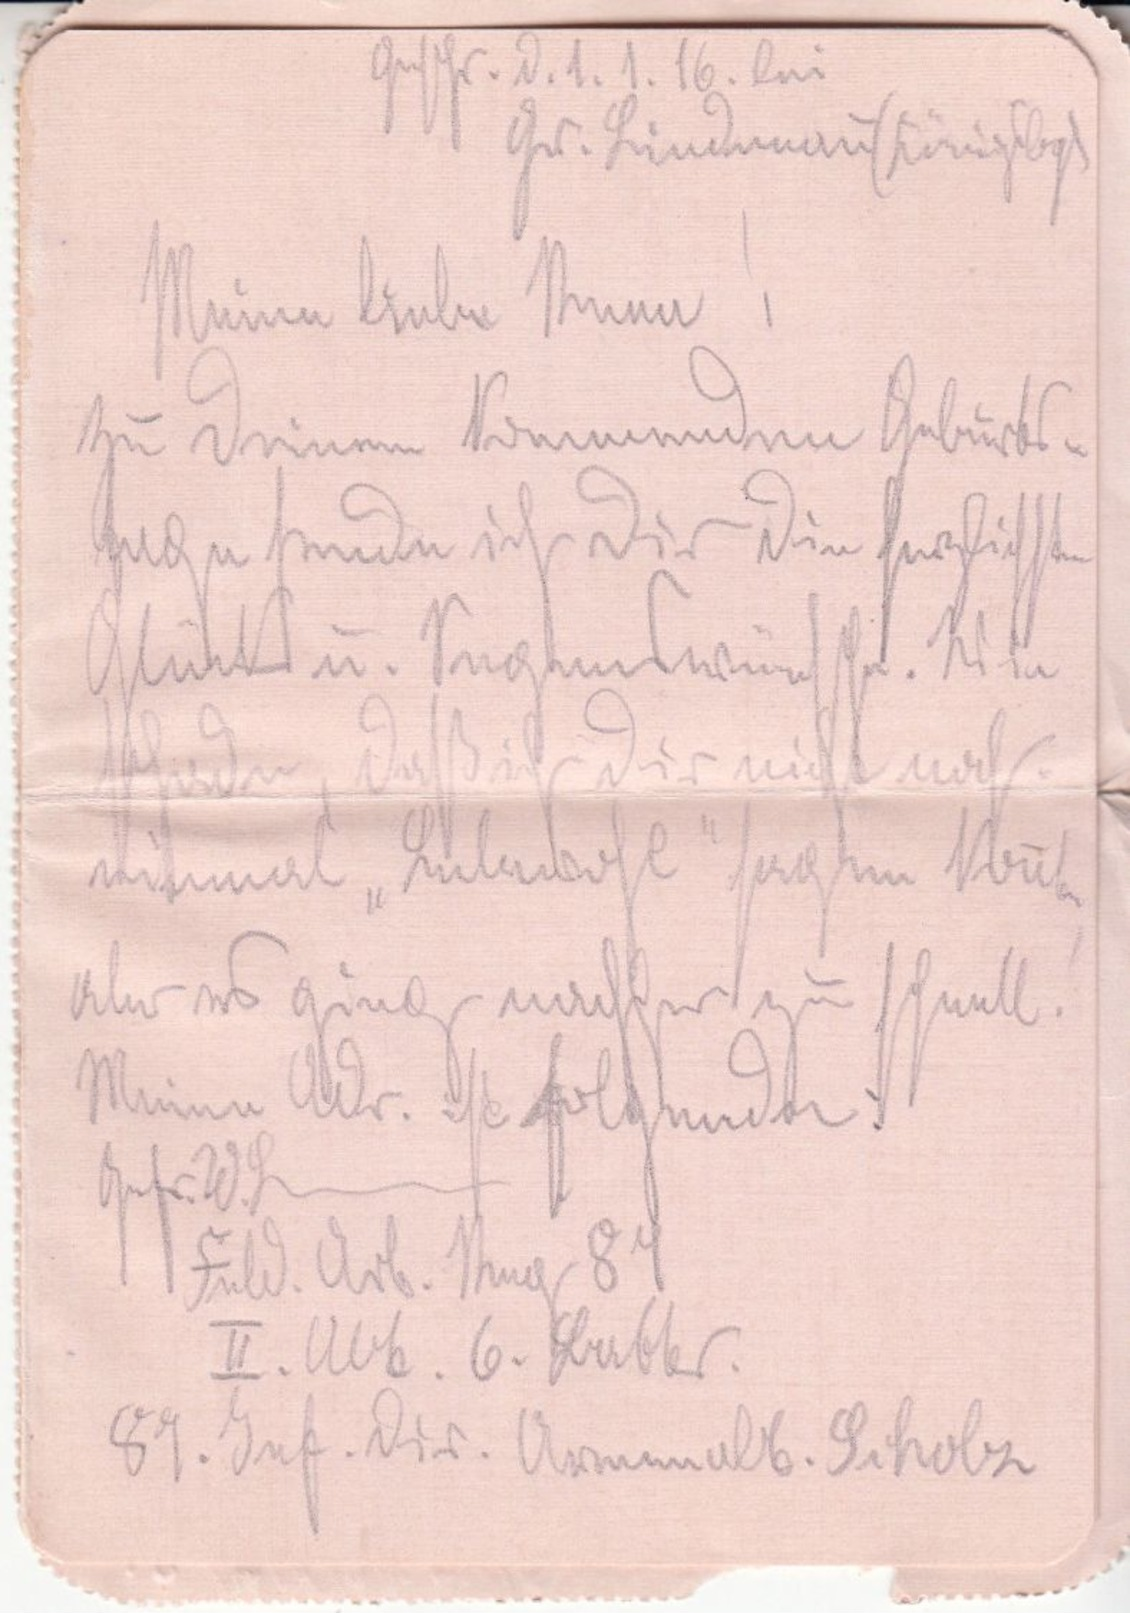 Geschr. d. 1. 1. 16. bei
Gr. Lindenau (Königsbg)
Meine liebe Anna!
zu Deinem kommenden Geburts-
tage sende ich Dir die herzlichsten
Glück u. Segenswünsche. Wie
schade, daß ich Dir nicht noch-
einmal „Lebewohl" sagen konnte,
aber es ging nachher zu schnell!
Meine Adr. ist folgende:
Gefr. W. L
Feld. Art. Reg 89
II. Abt. 6. Battr.
89. Inf. Div. Armeeabt. Scholz